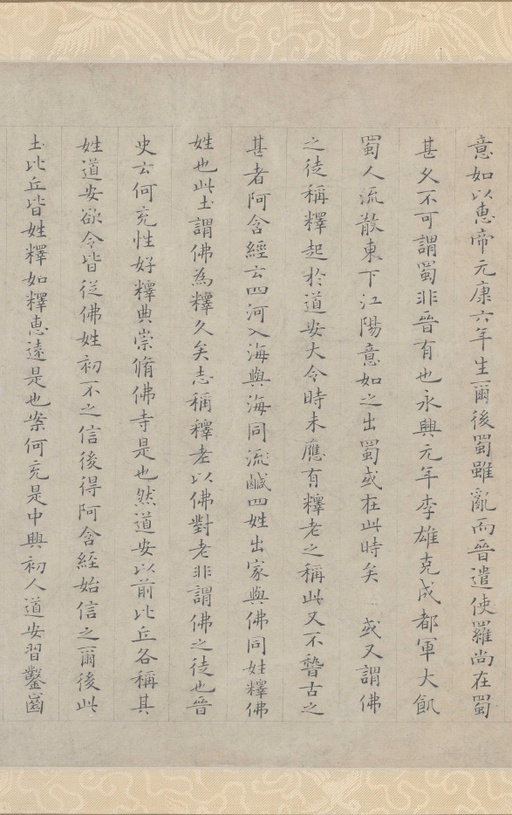 意如以惠帝元康六年生爾後蜀雖亂而晉遣使羅尚在蜀
甚久不可謂蜀非晉有也永興元年李雄克成都軍大飢
蜀人流散東下江陽意如之出蜀或在此時矣 或又謂佛
之徒稱釋起於道安大令時未應有釋老之稱此又不瞽古之
甚者阿含經云四河入海與海同流鹹四姓出家與佛同姓釋佛
姓也此土謂佛為釋久矣志稱釋老以佛對老非謂佛之徒也晉
史云何充性好釋典崇脩佛寺是也然道安以前比丘各稱其
姓道安欲令皆從佛姓初不之信後得阿含經始信之爾後此
土比丘皆姓釋如釋惠遠是也案何充是中興初人道安習鑿齒